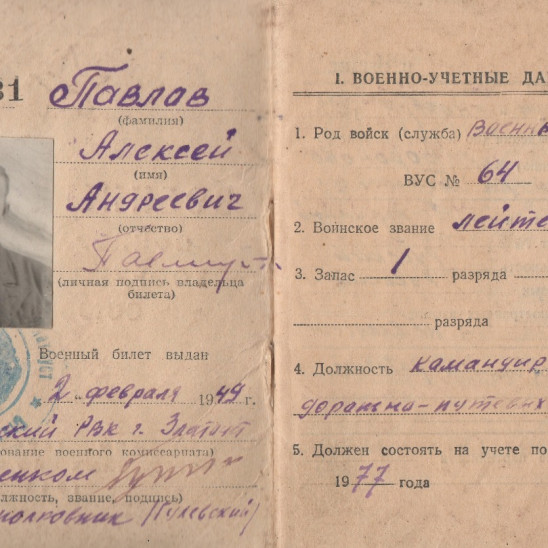 31
Павлав
(фамилия)
Алексей
(имя)
Андреевич
(отчество)
(личная подпись владельца
билета)
Военный билет выдан
2 февраля 1949 г.
ский РВК г. Златоуст
ование военного комиссариата)
енком
лжность, звание, подпись)
полковник (Гулевский)
I. ВОЕННО-УЧЕТНЫЕ ДА
1. Род войск (служба) Ваенн
ВУС № 64
2. Воинское звание лейте
3. Запас 1 разряда
разряда
4. Должность камандир
дорожно-путевых
5. Должен состоять на учете по
1977 года